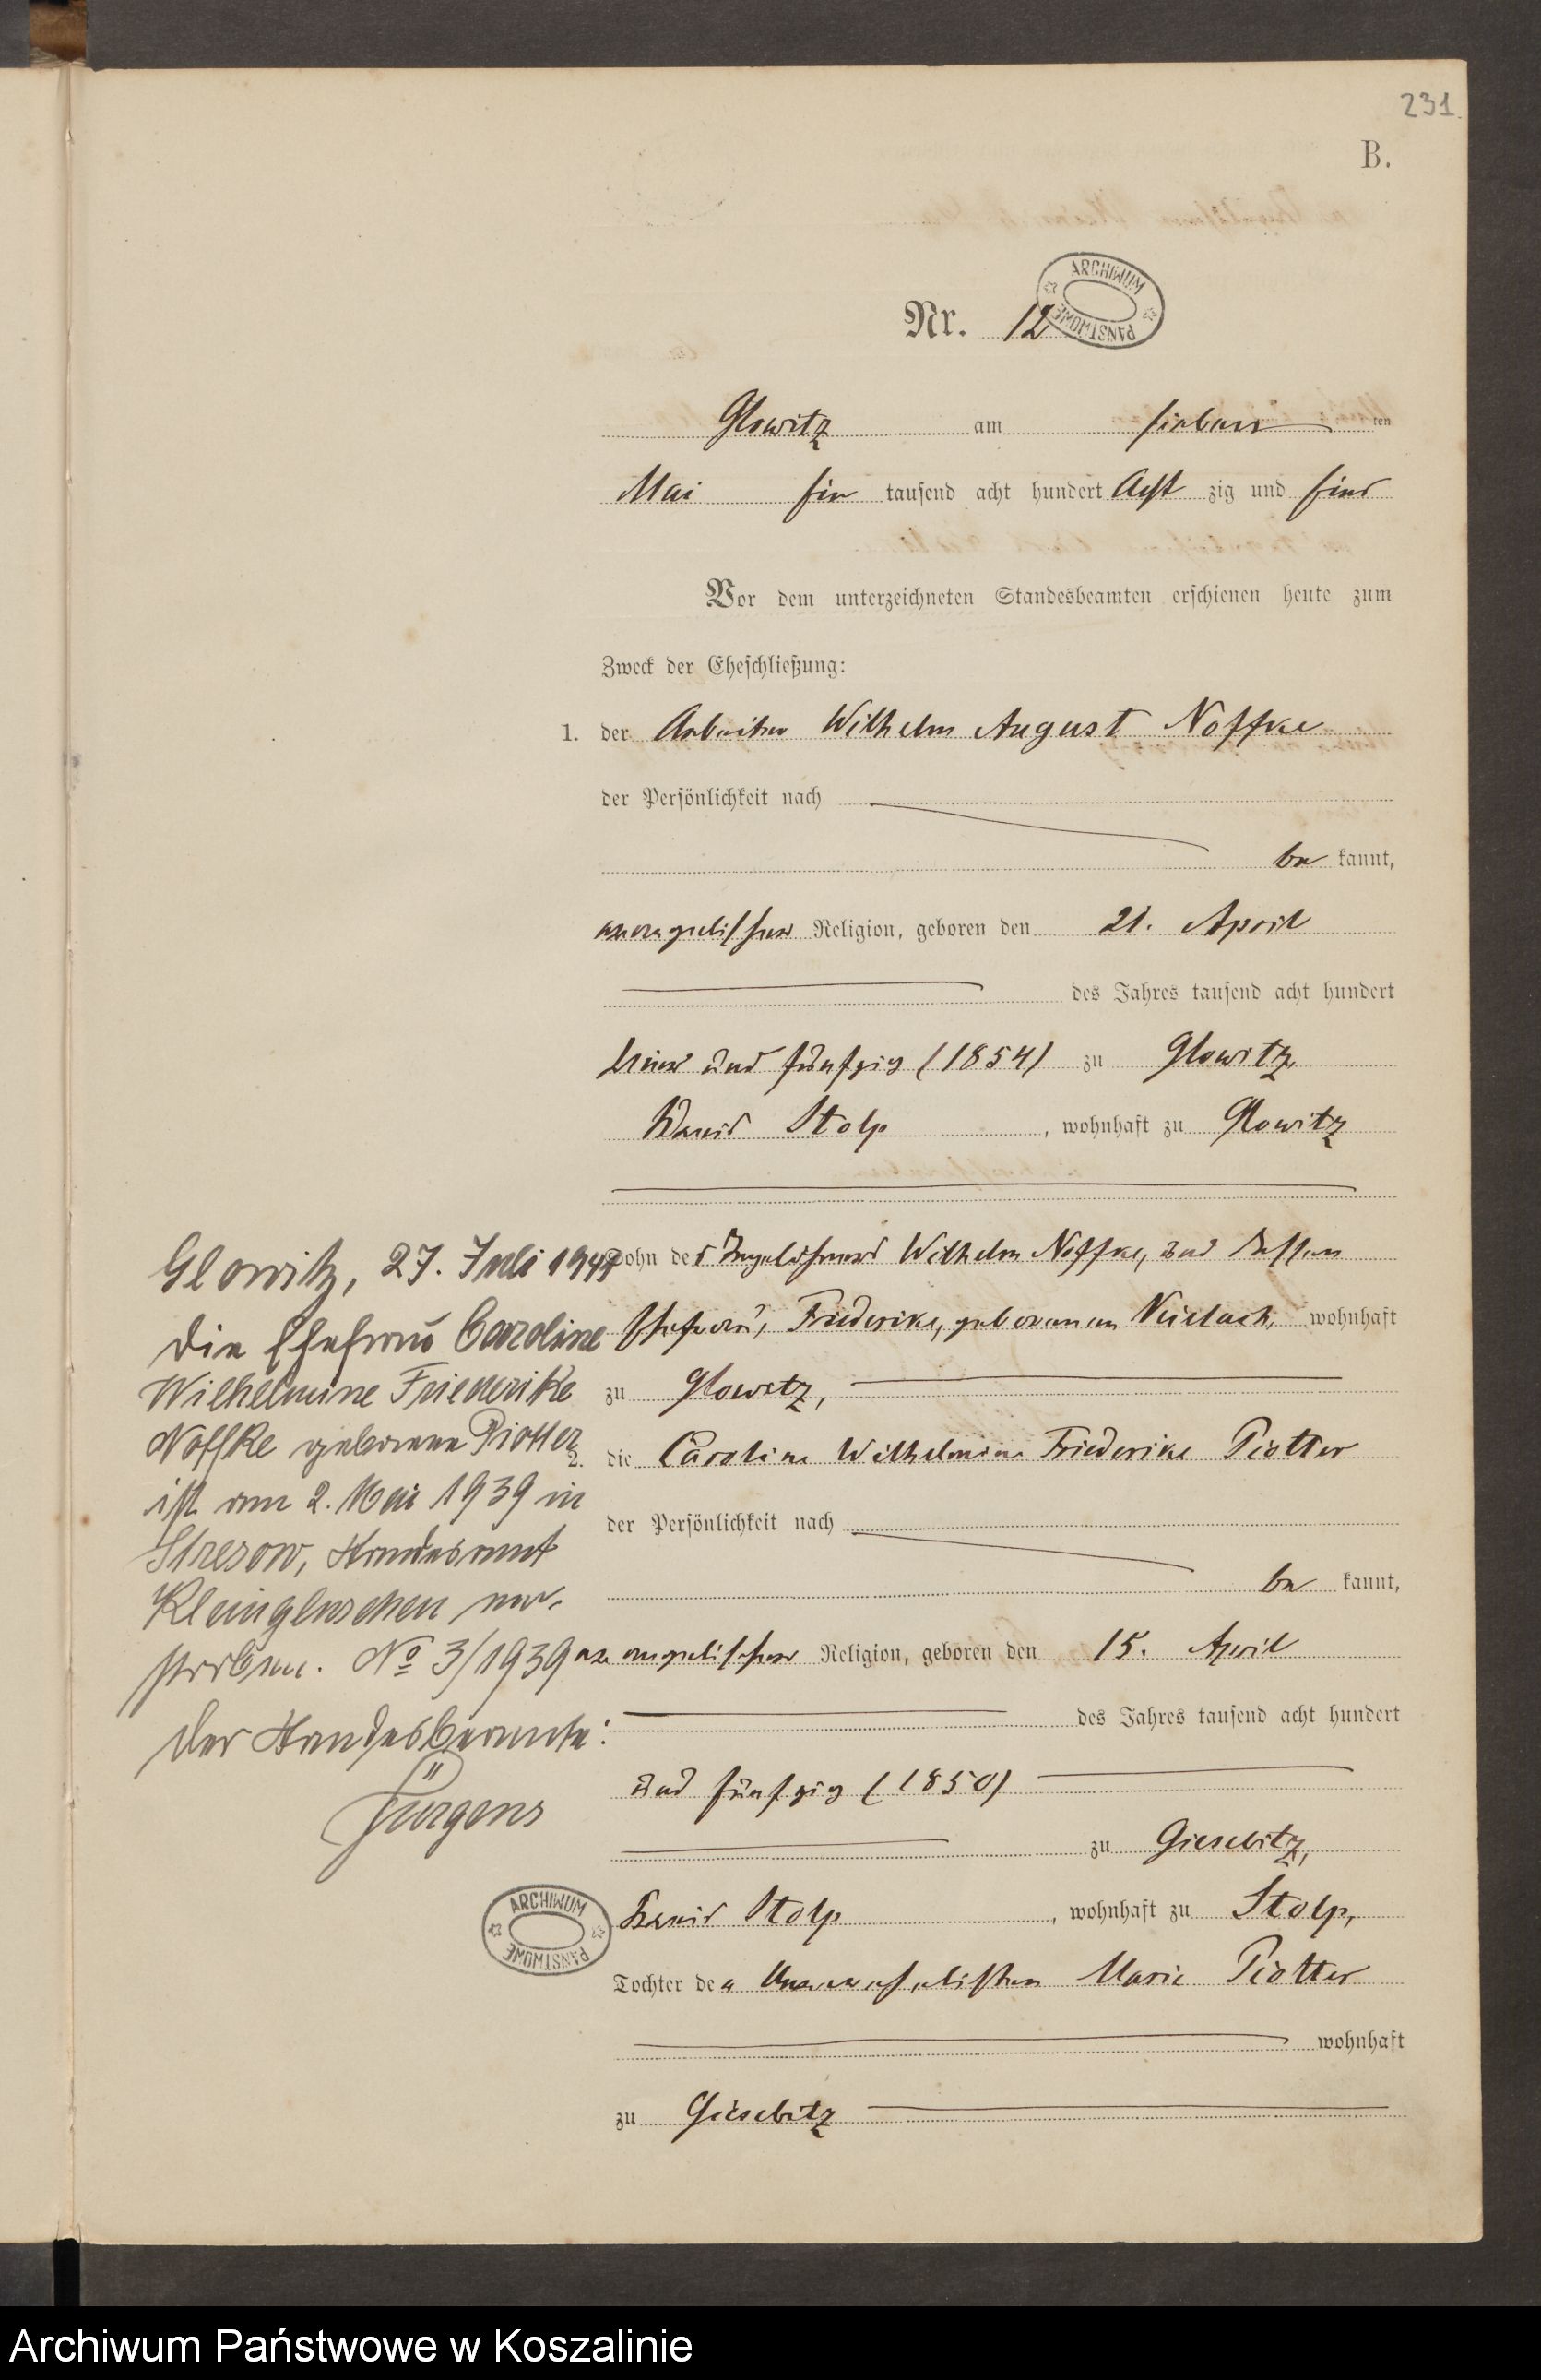 231.
B.
Nr. 12
ARCHIWUM PAŃSTWOWE
Glowitz am sieben ten
Mai Ein tausend acht hundert Acht zig und Eins
Vor dem unterzeichneten Standesbeamten erschienen heute zum
Zweck der Eheschließung:
1. der Arbeiter Wilhelm August Noffke
der Persönlichkeit nach
be kannt,
evangelischer Religion, geboren den 21. April
des Jahres tausend acht hundert
vier und fünfzig (1854) zu Glowitz
Kreis Stolp, wohnhaft zu Glowitz
Sohn des Tagelöhners Wilhelm Noffke, und dessen
Ehefrau, Friederike, geborenen wohnhaft
zu Glowitz,
2. die Caroline Wilhelmine Friederike Piotter
der Persönlichkeit nach
be kannt,
evangelischer Religion, geboren den 15. April
des Jahres tausend acht hundert
und fünfzig (1850)
zu Giesebitz,
Kreis Stolp, wohnhaft zu Stolp,
Tochter der Unverehelichten Marie Piotter
wohnhaft
zu Giesebitz
Glowitz, 27. Juli 194
Die Ehefrau Caroline
Wilhelmine Friederike
Noffke geborene Piotter
ist am 2. Mai 1939 in
Stresow, Standesamt
Kleingluschen ver-
storben. No 3/1939
Der Standesbeamte:
Jürgens
ARCHIWUM PAŃSTWOWE
Archiwum Państwowe w Koszalinie